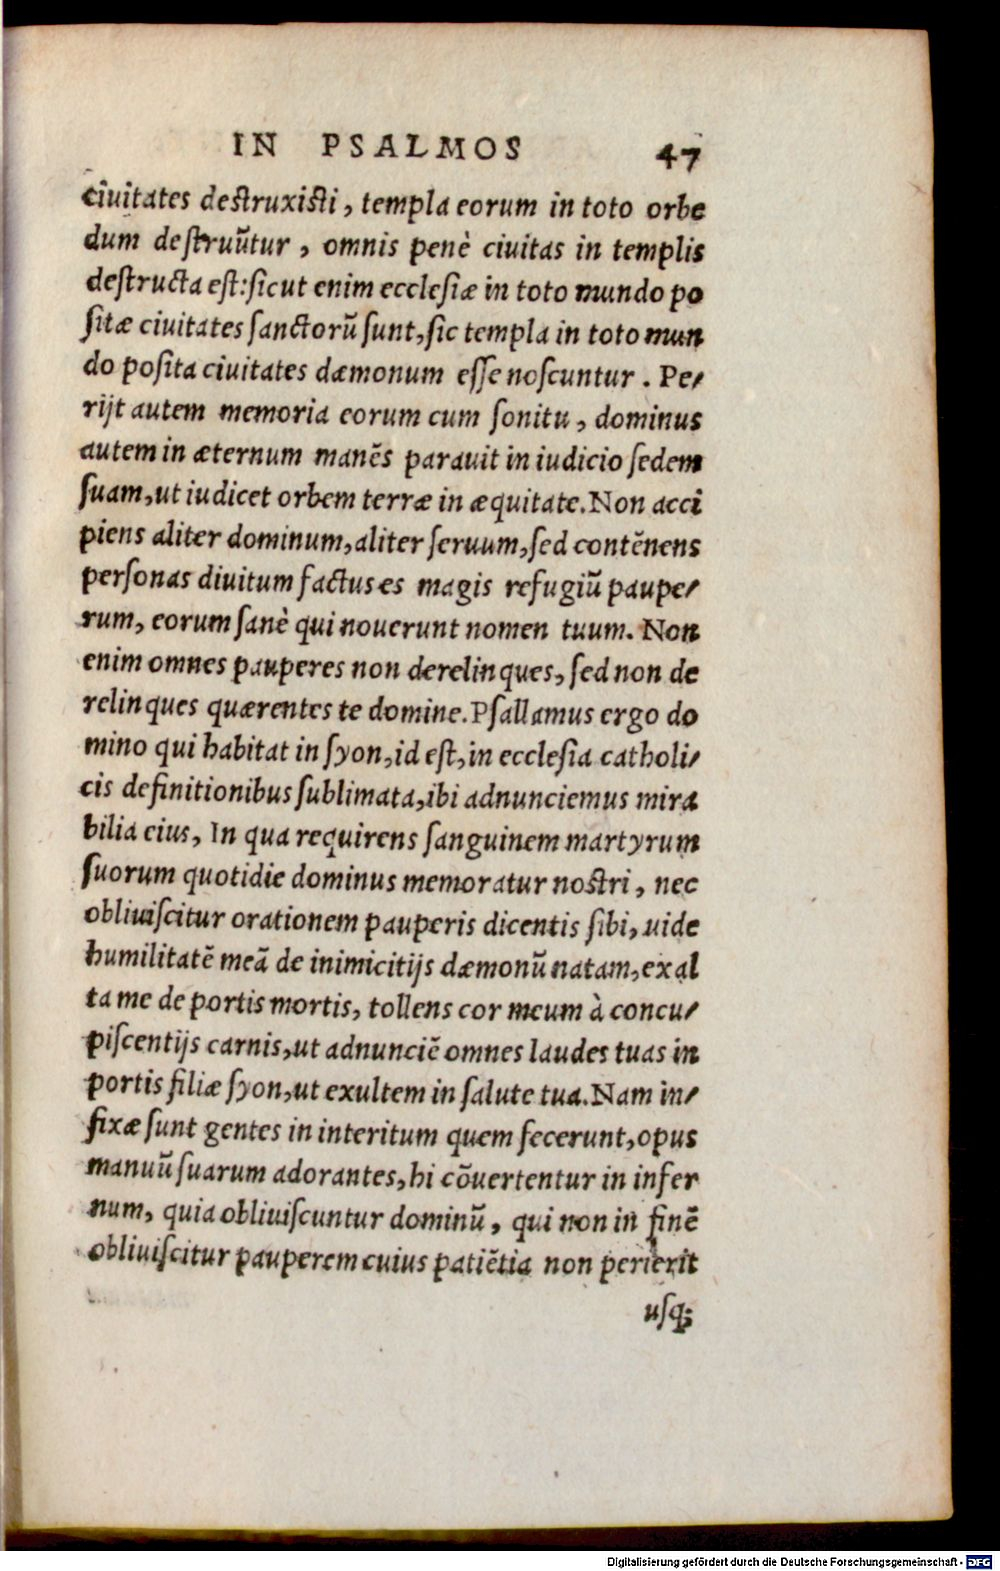 IN PSALMOS 47
ciuitates destruxisti, templa eorum in toto orbe
dum destruũtur, omnis penè ciuitas in templis
destructa est: sicut enim ecclesiæ in toto mundo po
sitæ ciuitates sanctorũ sunt, sic templa in toto mun
do posita ciuitates dæmonum esse noscuntur. Pe/
rijt autem memoria eorum cum sonitu, dominus
autem in æternum manẽs parauit in iudicio sedem
suam, ut iudicet orbem terræ in æquitate. Non acci
piens aliter dominum, aliter seruum, sed contẽnens
personas diuitum factus es magis refugiũ paupe/
rum, eorum sanè qui nouerunt nomen tuum. Non
enim omnes pauperes non derelinques, sed non de
relinques quærentes te domine. Psallamus ergo do
mino qui habitat in syon, id est, in ecclesia catholi/
cis definitionibus sublimata, ibi adnunciemus mira
bilia eius, In qua requirens sanguinem martyrum
suorum quotidie dominus memoratur nostri, nec
obliuiscitur orationem pauperis dicentis sibi, uide
humilitatẽ meã de inimicitijs dæmonũ natam, exal
ta me de portis mortis, tollens cor meum à concu/
piscentijs carnis, ut adnunciẽ omnes laudes tuas in
portis filiæ syon, ut exultem in salute tua. Nam in/
fixæ sunt gentes in interitum quem fecerunt, opus
manuũ suarum adorantes, hi cõuertentur in infer
num, quia obliuiscuntur dominũ, qui non in finẽ
obliuiscitur pauperem cuius patiẽtia non perierit
usq;
Digitalisierung gefördert durch die Deutsche Forschungsgemeinschaft - DFG